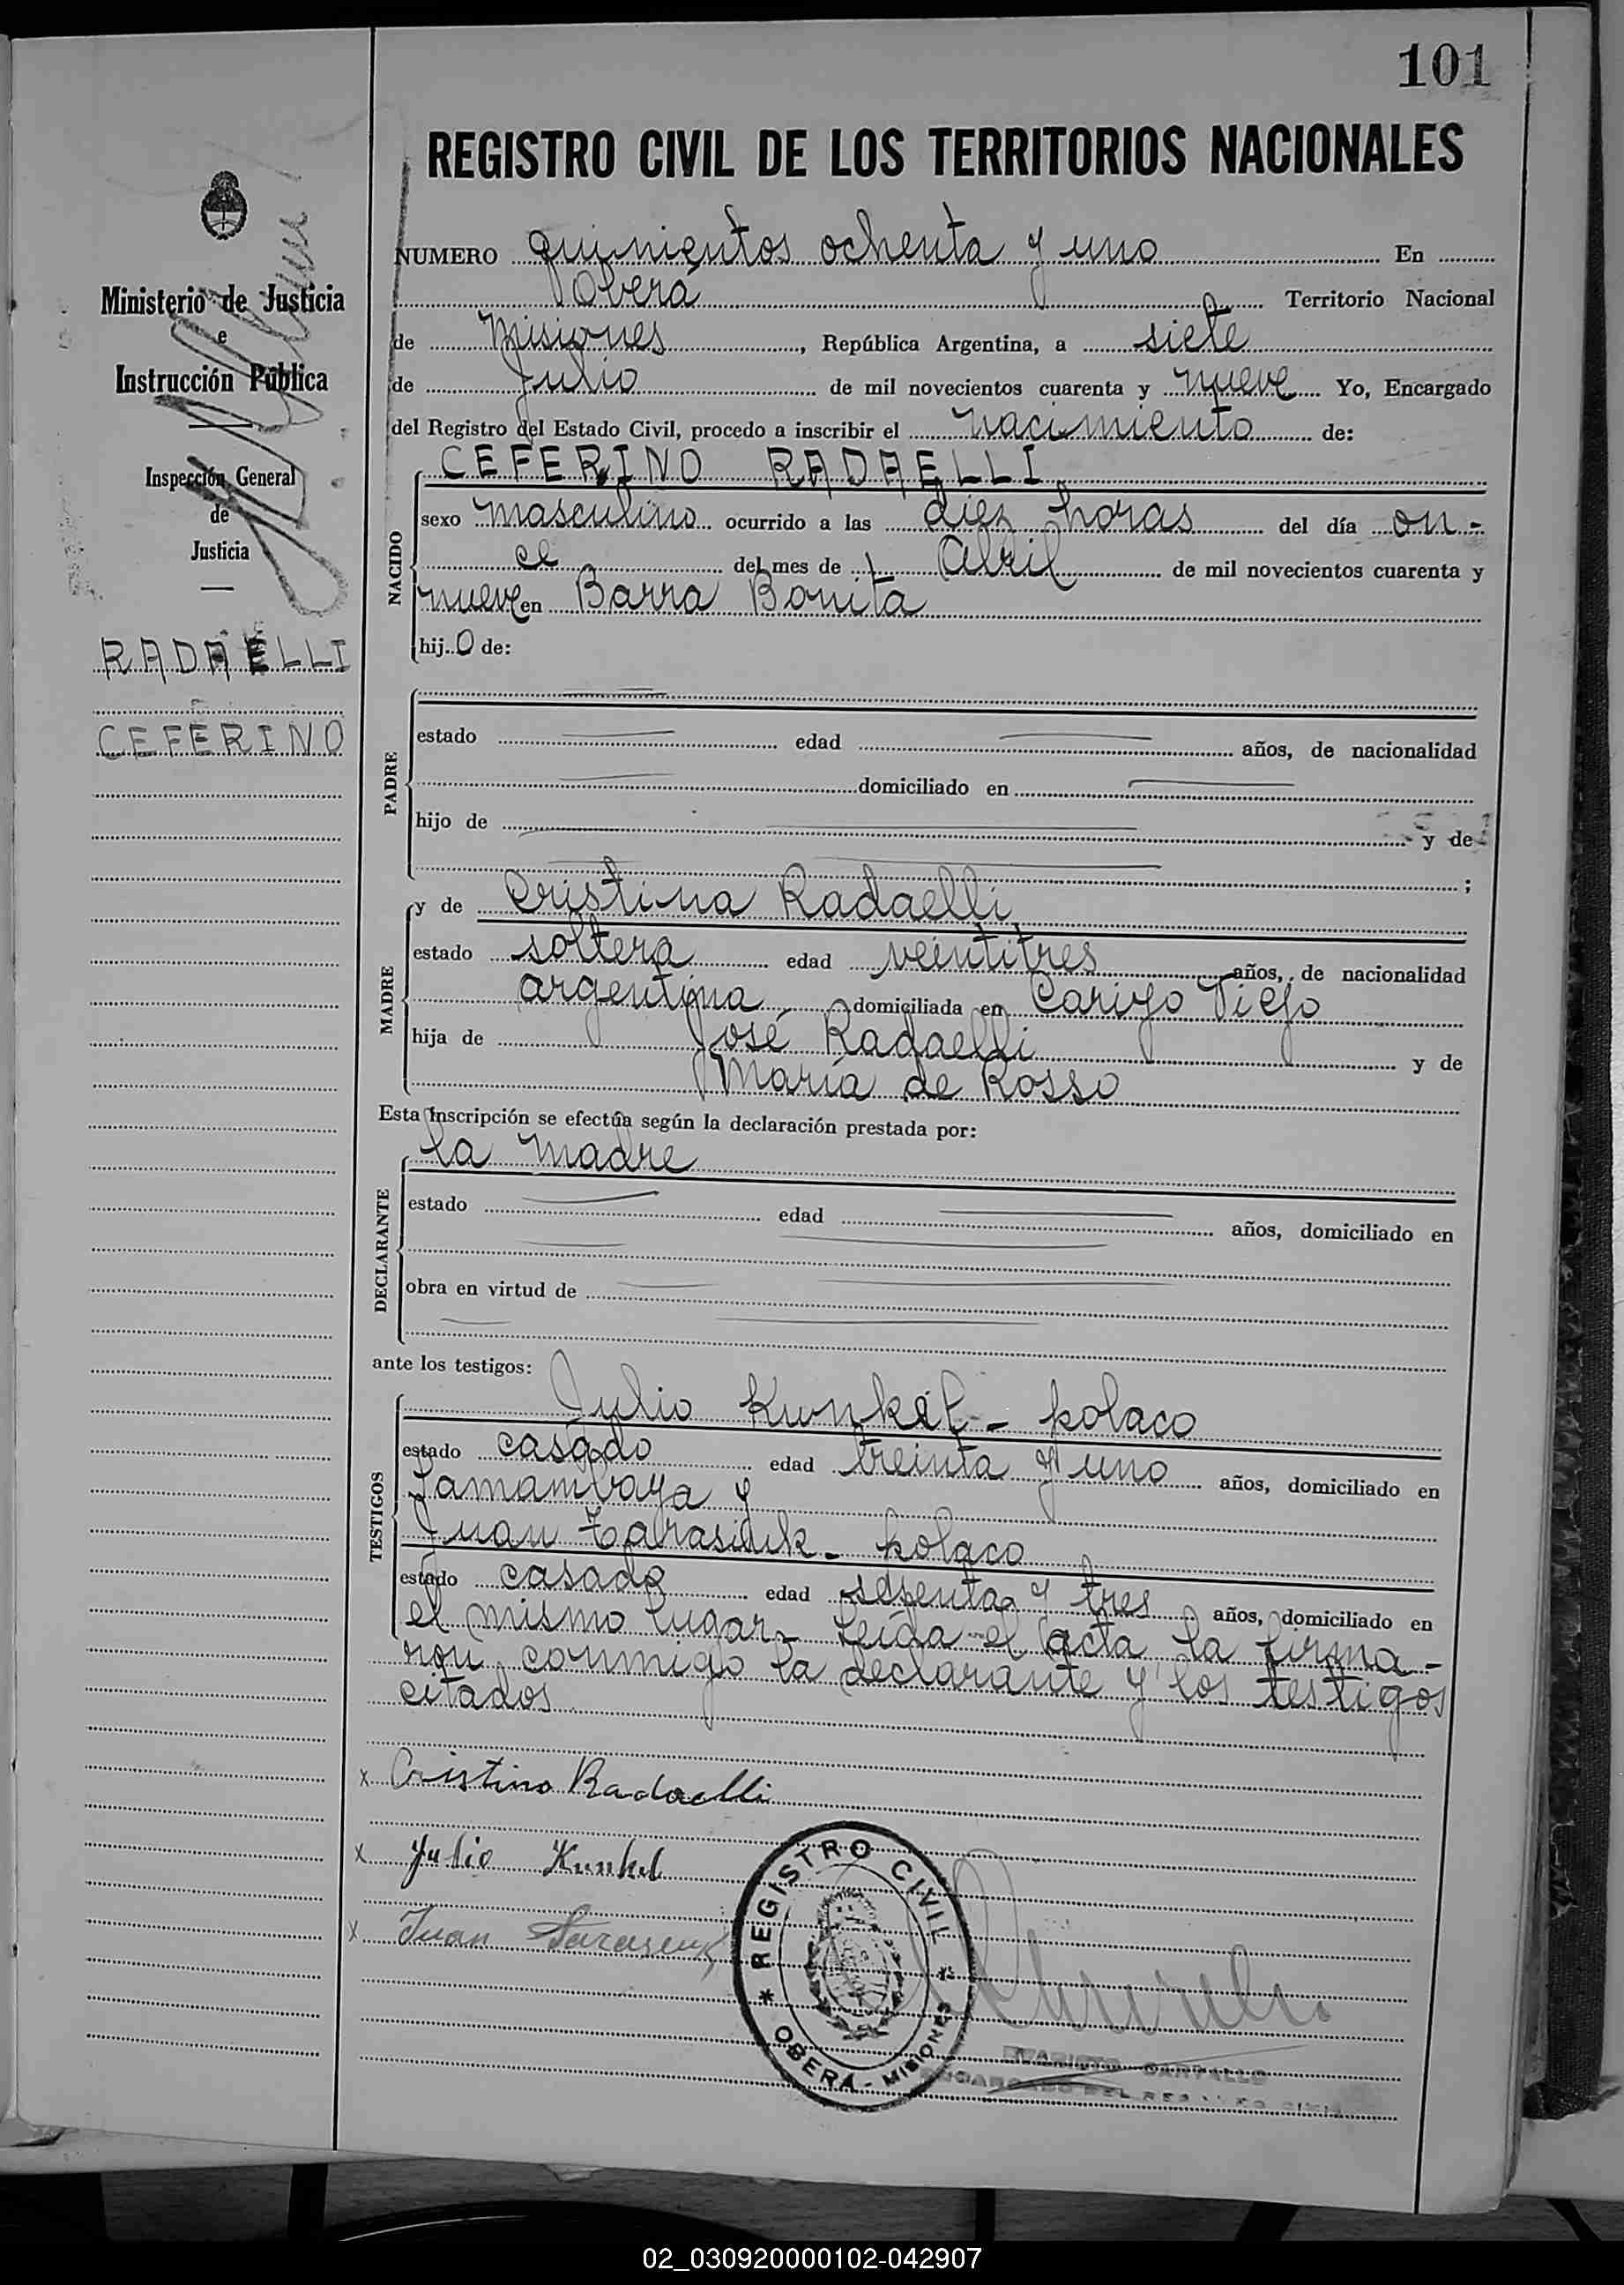 101
REGISTRO CIVIL DE LOS TERRITORIOS NACIONALES
Ministerio de Justicia
e
Instrucción Pública
Inspección General
de
Justicia
RADAELLI
CEFERINO
NUMERO quinientos ochenta y uno En
Oberá Territorio Nacional
de Misiones, República Argentina, a siete
de Julio de mil novecientos cuarenta y nueve Yo, Encargado
del Registro del Estado Civil, procedo a inscribir el nacimiento de:
NACIDO
CEFERINO RADAELLI
sexo masculino ocurrido a las diez horas del día on-
ce del mes de Abril de mil novecientos cuarenta y
nueve en Barra Bonita
hijo de:
PADRE
estado edad años, de nacionalidad
domiciliado en
hijo de y de
;
MADRE
y de Cristina Radaelli
estado soltera edad veintitres años, de nacionalidad
argentina domiciliada en Cariyo Viejo
hija de José Radaelli y de
María de Rosso
Esta inscripción se efectúa según la declaración prestada por:
DECLARANTE
la madre
estado edad años, domiciliado en
obra en virtud de
ante los testigos:
TESTIGOS
Julio Kunkel - polaco
estado casado edad treinta y uno años, domiciliado en
Samambaya y
Juan Tarasiuk - polaco
estado casado edad sesenta y tres años, domiciliado en
el mismo lugar. Leída el acta la firma-
ron conmigo la declarante y los testigos
citados
x Cristina Radaelli
x Julio Kunkel
x Juan
REGISTRO CIVIL
* OBERÁ - MISIONES *
CARVALLO
ENCARGADO DEL REGISTRO CIVIL
02_030920000102-042907